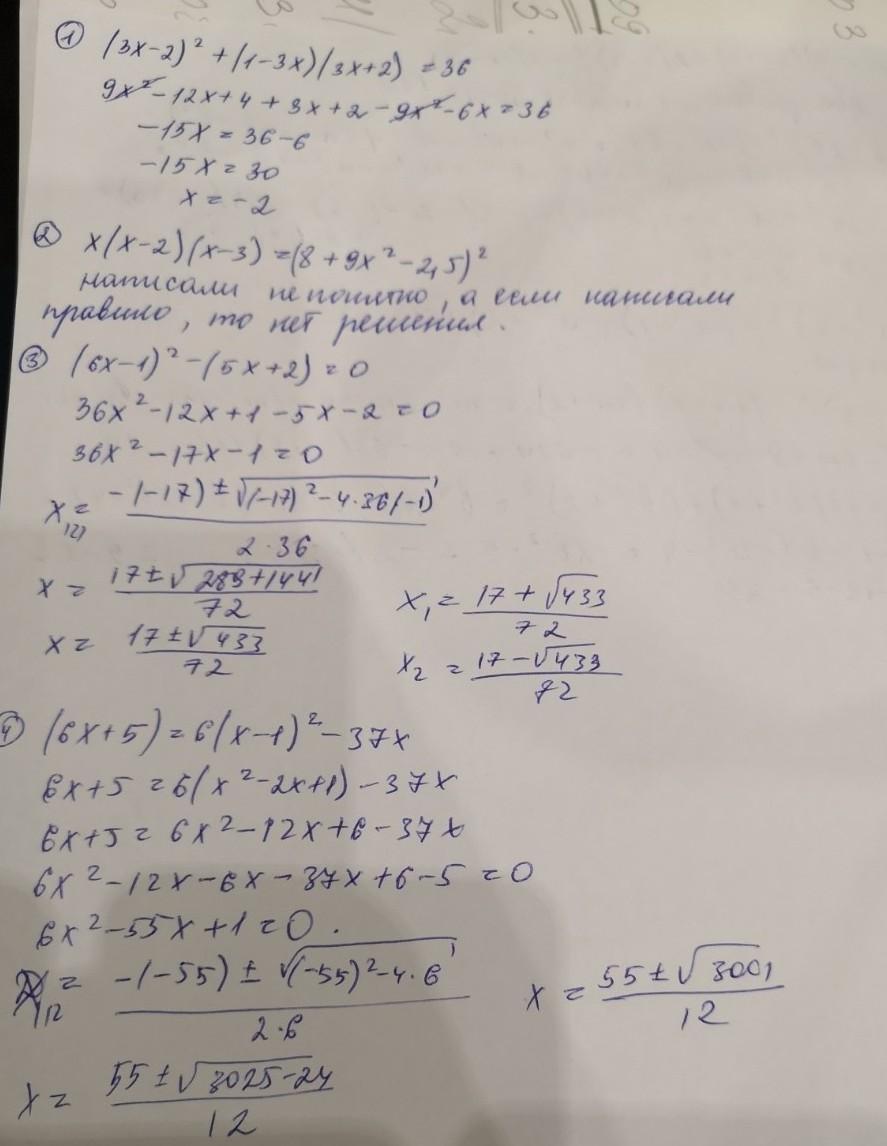 ① (3x-2)² + (1-3x)(3x+2) = 36
9x² - 12x + 4 + 3x + 2 - 9x² - 6x = 36
-15x = 36-6
-15x = 30
x = -2
② x(x-2)(x-3) = (8 + 9x² - 2,5)²
написали непонятно, а если написали
правило, то нет решения.
③ (6x-1)² - (5x+2) = 0
36x² - 12x + 1 - 5x - 2 = 0
36x² - 17x - 1 = 0
x₁,₂ = (-(-17) ± √((-17)² - 4·36(-1))) / (2·36)
x = (17 ± √(289+144)) / 72
x = (17 ± √433) / 72
x₁ = (17 + √433) / 72
x₂ = (17 - √433) / 72
④ (6x+5) = 6(x-1)² - 37x
6x+5 = 6(x²-2x+1) - 37x
6x+5 = 6x² - 12x + 6 - 37x
6x² - 12x - 6x - 37x + 6 - 5 = 0
6x² - 55x + 1 = 0.
x₁₂ = (-(-55) ± √((-55)² - 4·6)) / (2·6)
x = (55 ± √(3025-24)) / 12
x = (55 ± √3001) / 12